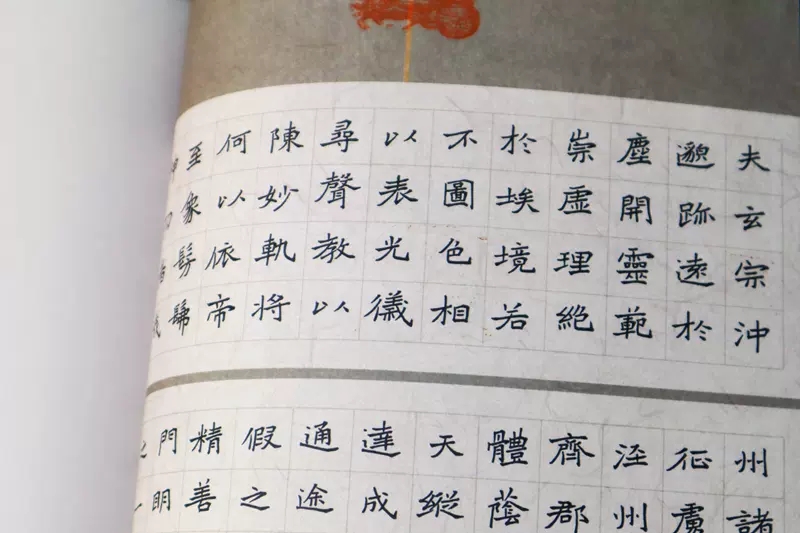 夫玄宗沖
邈跡遠於
塵開靈範
崇虛理絕
於埃境若
不圖色相
以表光儀
尋聲教以
陳妙軌將
何以依帝
至象髣髴
州諸
征虜
涇州
齊郡
體蔭
天縱
達成
通途
假之
精善
門明
之一